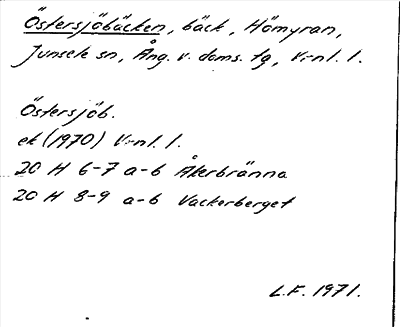 Östersjöbäcken, bäck, Hömyran,
Junsele sn, Ång. v. doms. tg, V-nl. l.
Östersjöb.
ek (1970) V-nl. l.
20 H 6-7 a-b Åkerbränna
20 H 8-9 a-b Vackerberget
L.F. 1971.